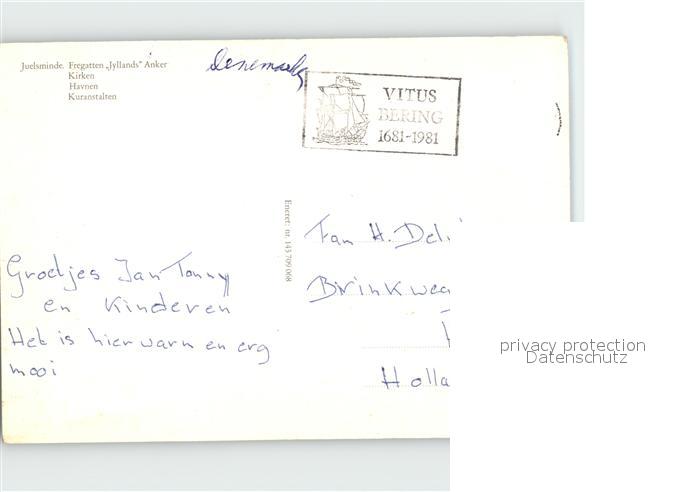 Juelsminde. Fregatten „Jyllands" Anker
Kirken
Havnen
Kuranstalten
Denemark
VITUS
BERING
1681-1981
Eneret: nr. 143 709 068
Groetjes Jan Tonny
en Kinderen
Het is hier warm en erg
mooi
Fam H.
Brinkweg
Holla
privacy protection
Datenschutz